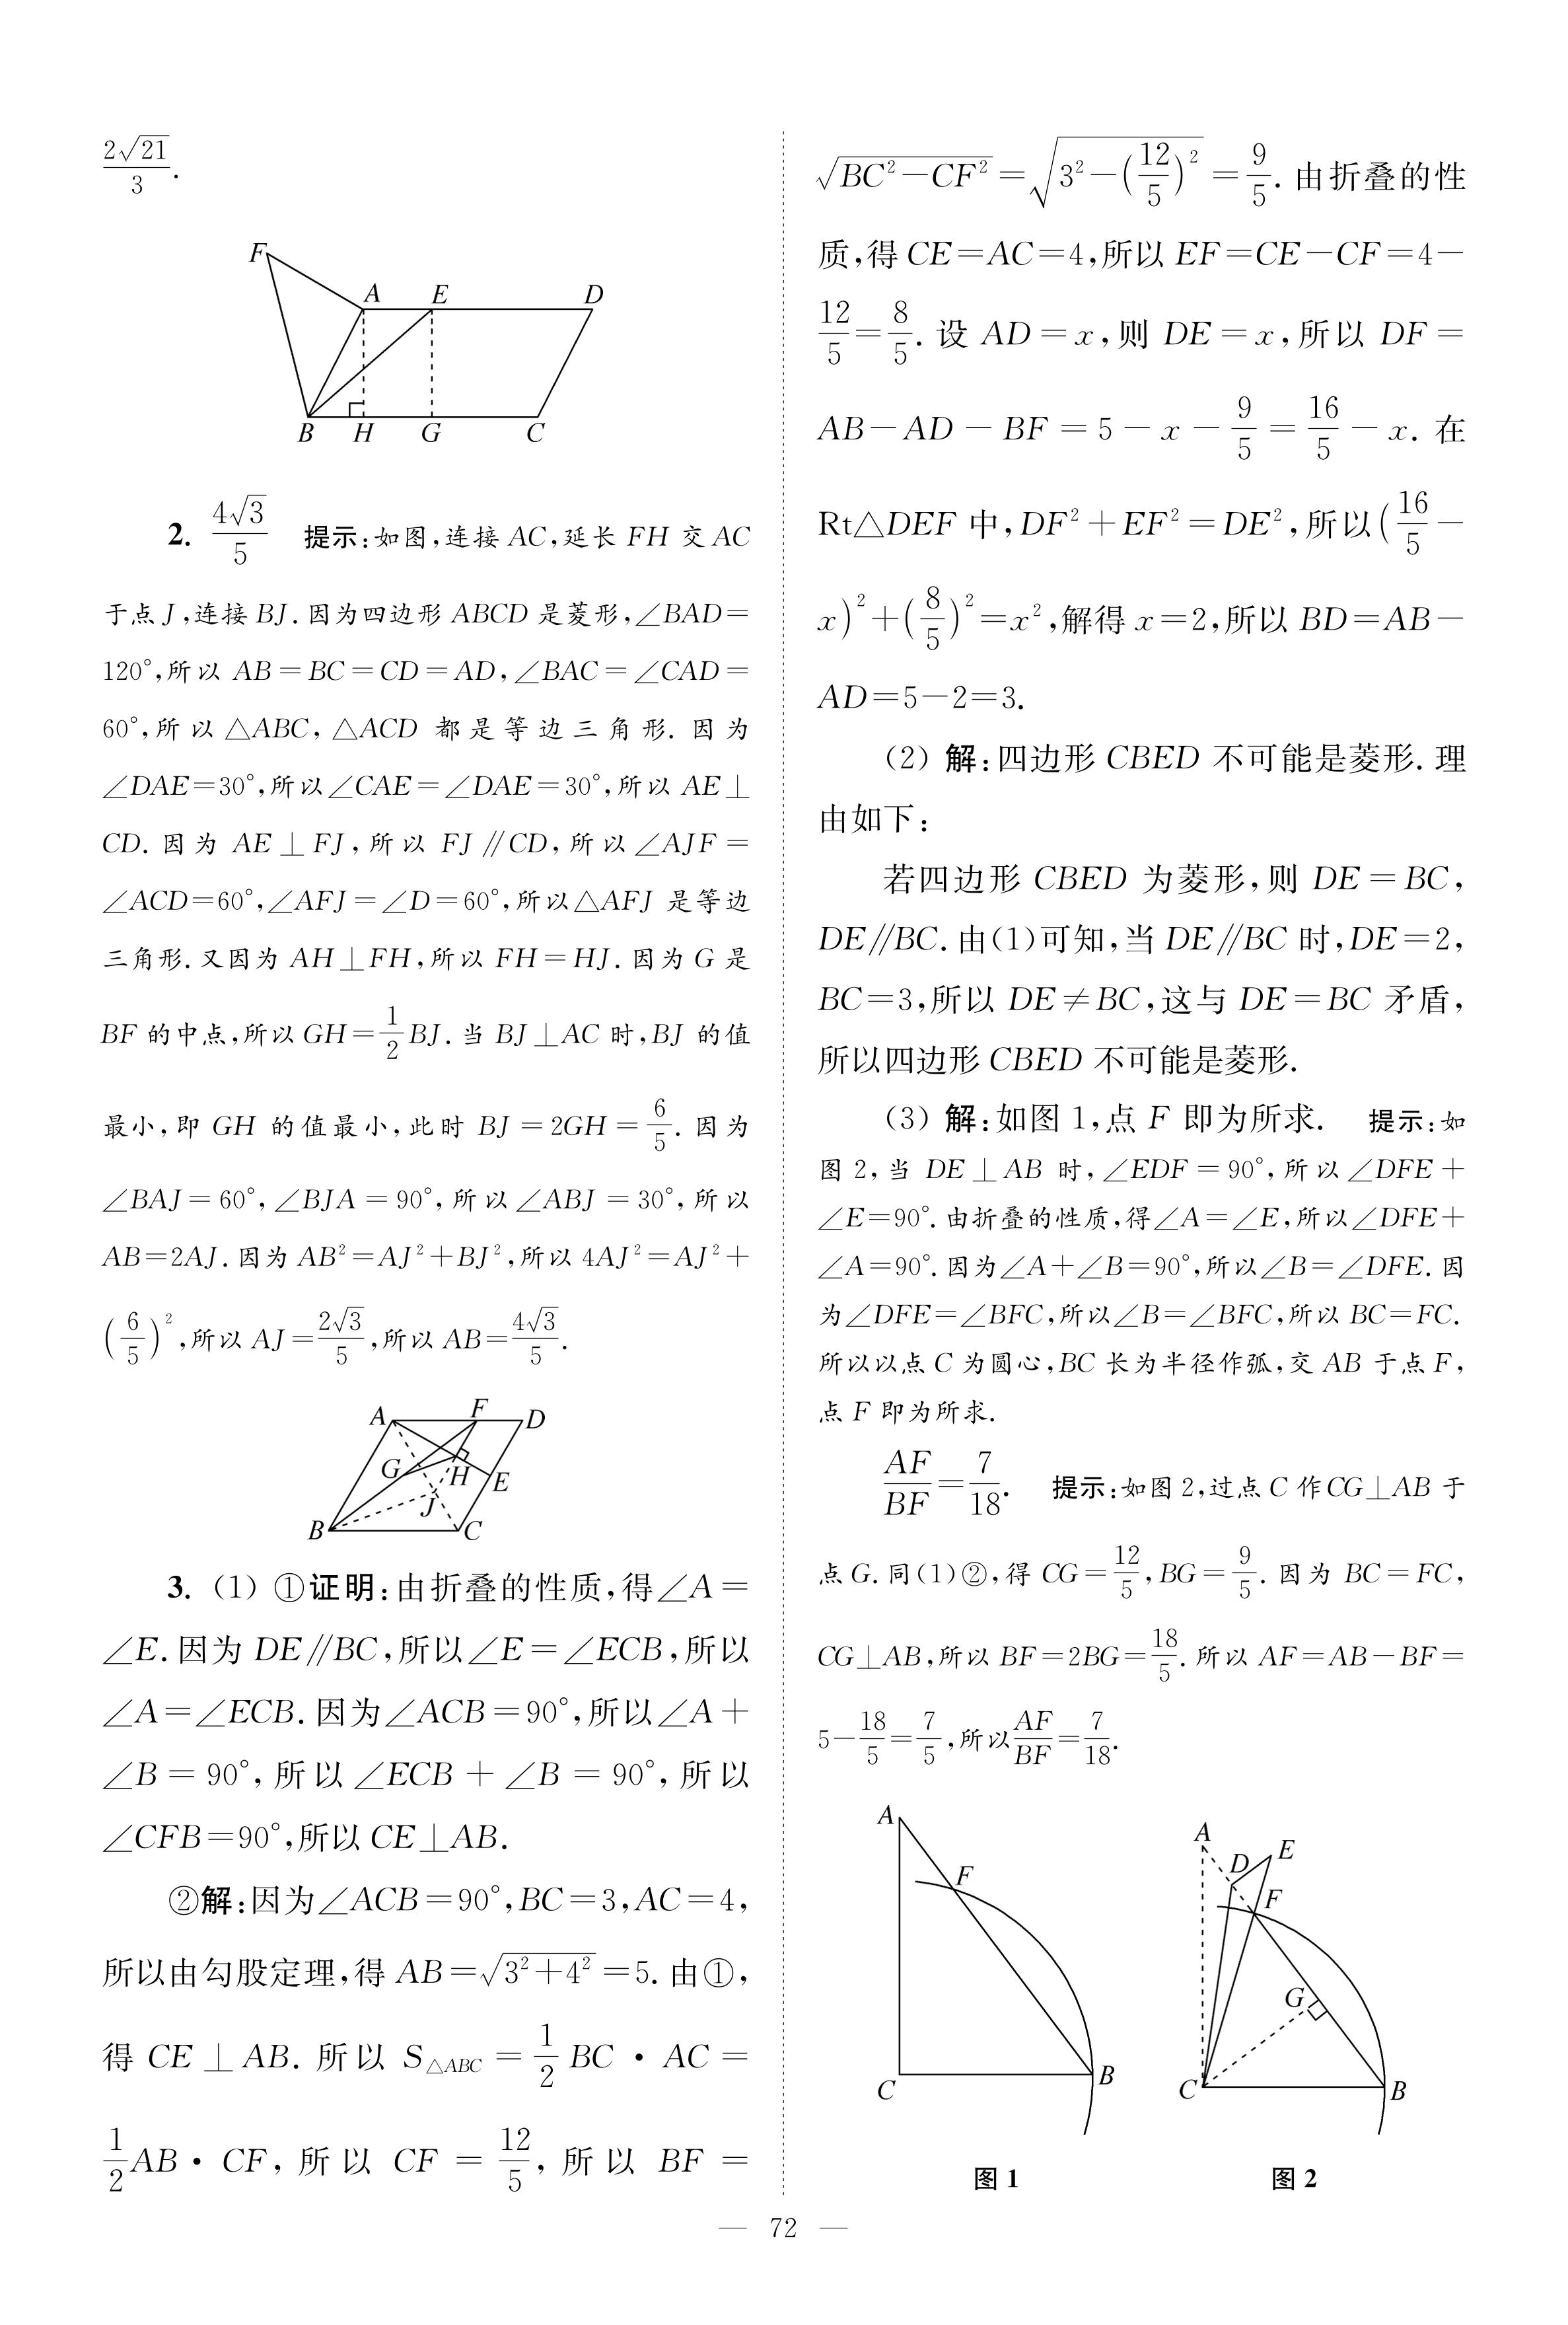 $\frac{2\sqrt{21}}{3}$.
F
A E D
B H G C
2. $\frac{4\sqrt{3}}{5}$ 提示:如图,连接 AC,延长 FH 交 AC
于点 J,连接 BJ. 因为四边形 ABCD 是菱形,∠BAD=
120°,所以 AB=BC=CD=AD,∠BAC=∠CAD=
60°,所以△ABC,△ACD 都是等边三角形. 因为
∠DAE=30°,所以∠CAE=∠DAE=30°,所以 AE⊥
CD. 因为 AE⊥FJ,所以 FJ∥CD,所以∠AJF=
∠ACD=60°,∠AFJ=∠D=60°,所以△AFJ 是等边
三角形. 又因为 AH⊥FH,所以 FH=HJ. 因为 G 是
BF 的中点,所以 GH=$\frac{1}{2}$BJ. 当 BJ⊥AC 时,BJ 的值
最小,即 GH 的值最小,此时 BJ=2GH=$\frac{6}{5}$. 因为
∠BAJ=60°,∠BJA=90°,所以∠ABJ=30°,所以
AB=2AJ. 因为 AB²=AJ²+BJ²,所以 4AJ²=AJ²+
$\left(\frac{6}{5}\right)^2$,所以 AJ=$\frac{2\sqrt{3}}{5}$,所以 AB=$\frac{4\sqrt{3}}{5}$.
A F D
G H E
J
B C
3. (1) ①证明:由折叠的性质,得∠A=
∠E. 因为 DE∥BC,所以∠E=∠ECB,所以
∠A=∠ECB. 因为∠ACB=90°,所以∠A+
∠B=90°,所以∠ECB+∠B=90°,所以
∠CFB=90°,所以 CE⊥AB.
②解:因为∠ACB=90°,BC=3,AC=4,
所以由勾股定理,得 AB=$\sqrt{3^2+4^2}$=5. 由①,
得 CE⊥AB. 所以 $S_{△ABC}$=$\frac{1}{2}$BC·AC=
$\frac{1}{2}$AB·CF,所以 CF=$\frac{12}{5}$,所以 BF=
$\sqrt{BC^2-CF^2}$=$\sqrt{3^2-\left(\frac{12}{5}\right)^2}$=$\frac{9}{5}$. 由折叠的性
质,得 CE=AC=4,所以 EF=CE-CF=4-
$\frac{12}{5}$=$\frac{8}{5}$. 设 AD=x,则 DE=x,所以 DF=
AB-AD-BF=5-x-$\frac{9}{5}$=$\frac{16}{5}$-x. 在
Rt△DEF 中,DF²+EF²=DE²,所以($\frac{16}{5}$-
x)²+$\left(\frac{8}{5}\right)^2$=x²,解得 x=2,所以 BD=AB-
AD=5-2=3.
(2) 解:四边形 CBED 不可能是菱形. 理
由如下:
若四边形 CBED 为菱形,则 DE=BC,
DE∥BC. 由(1)可知,当 DE∥BC 时,DE=2,
BC=3,所以 DE≠BC,这与 DE=BC 矛盾,
所以四边形 CBED 不可能是菱形.
(3) 解:如图 1,点 F 即为所求. 提示:如
图 2,当 DE⊥AB 时,∠EDF=90°,所以∠DFE+
∠E=90°. 由折叠的性质,得∠A=∠E,所以∠DFE+
∠A=90°. 因为∠A+∠B=90°,所以∠B=∠DFE. 因
为∠DFE=∠BFC,所以∠B=∠BFC,所以 BC=FC.
所以以点 C 为圆心,BC 长为半径作弧,交 AB 于点 F,
点 F 即为所求.
$\frac{AF}{BF}$=$\frac{7}{18}$. 提示:如图 2,过点 C 作 CG⊥AB 于
点 G. 同(1)②,得 CG=$\frac{12}{5}$,BG=$\frac{9}{5}$. 因为 BC=FC,
CG⊥AB,所以 BF=2BG=$\frac{18}{5}$. 所以 AF=AB-BF=
5-$\frac{18}{5}$=$\frac{7}{5}$,所以$\frac{AF}{BF}$=$\frac{7}{18}$.
A
F
C B
图 1
A
D E
F
G
C B
图 2
— 72 —